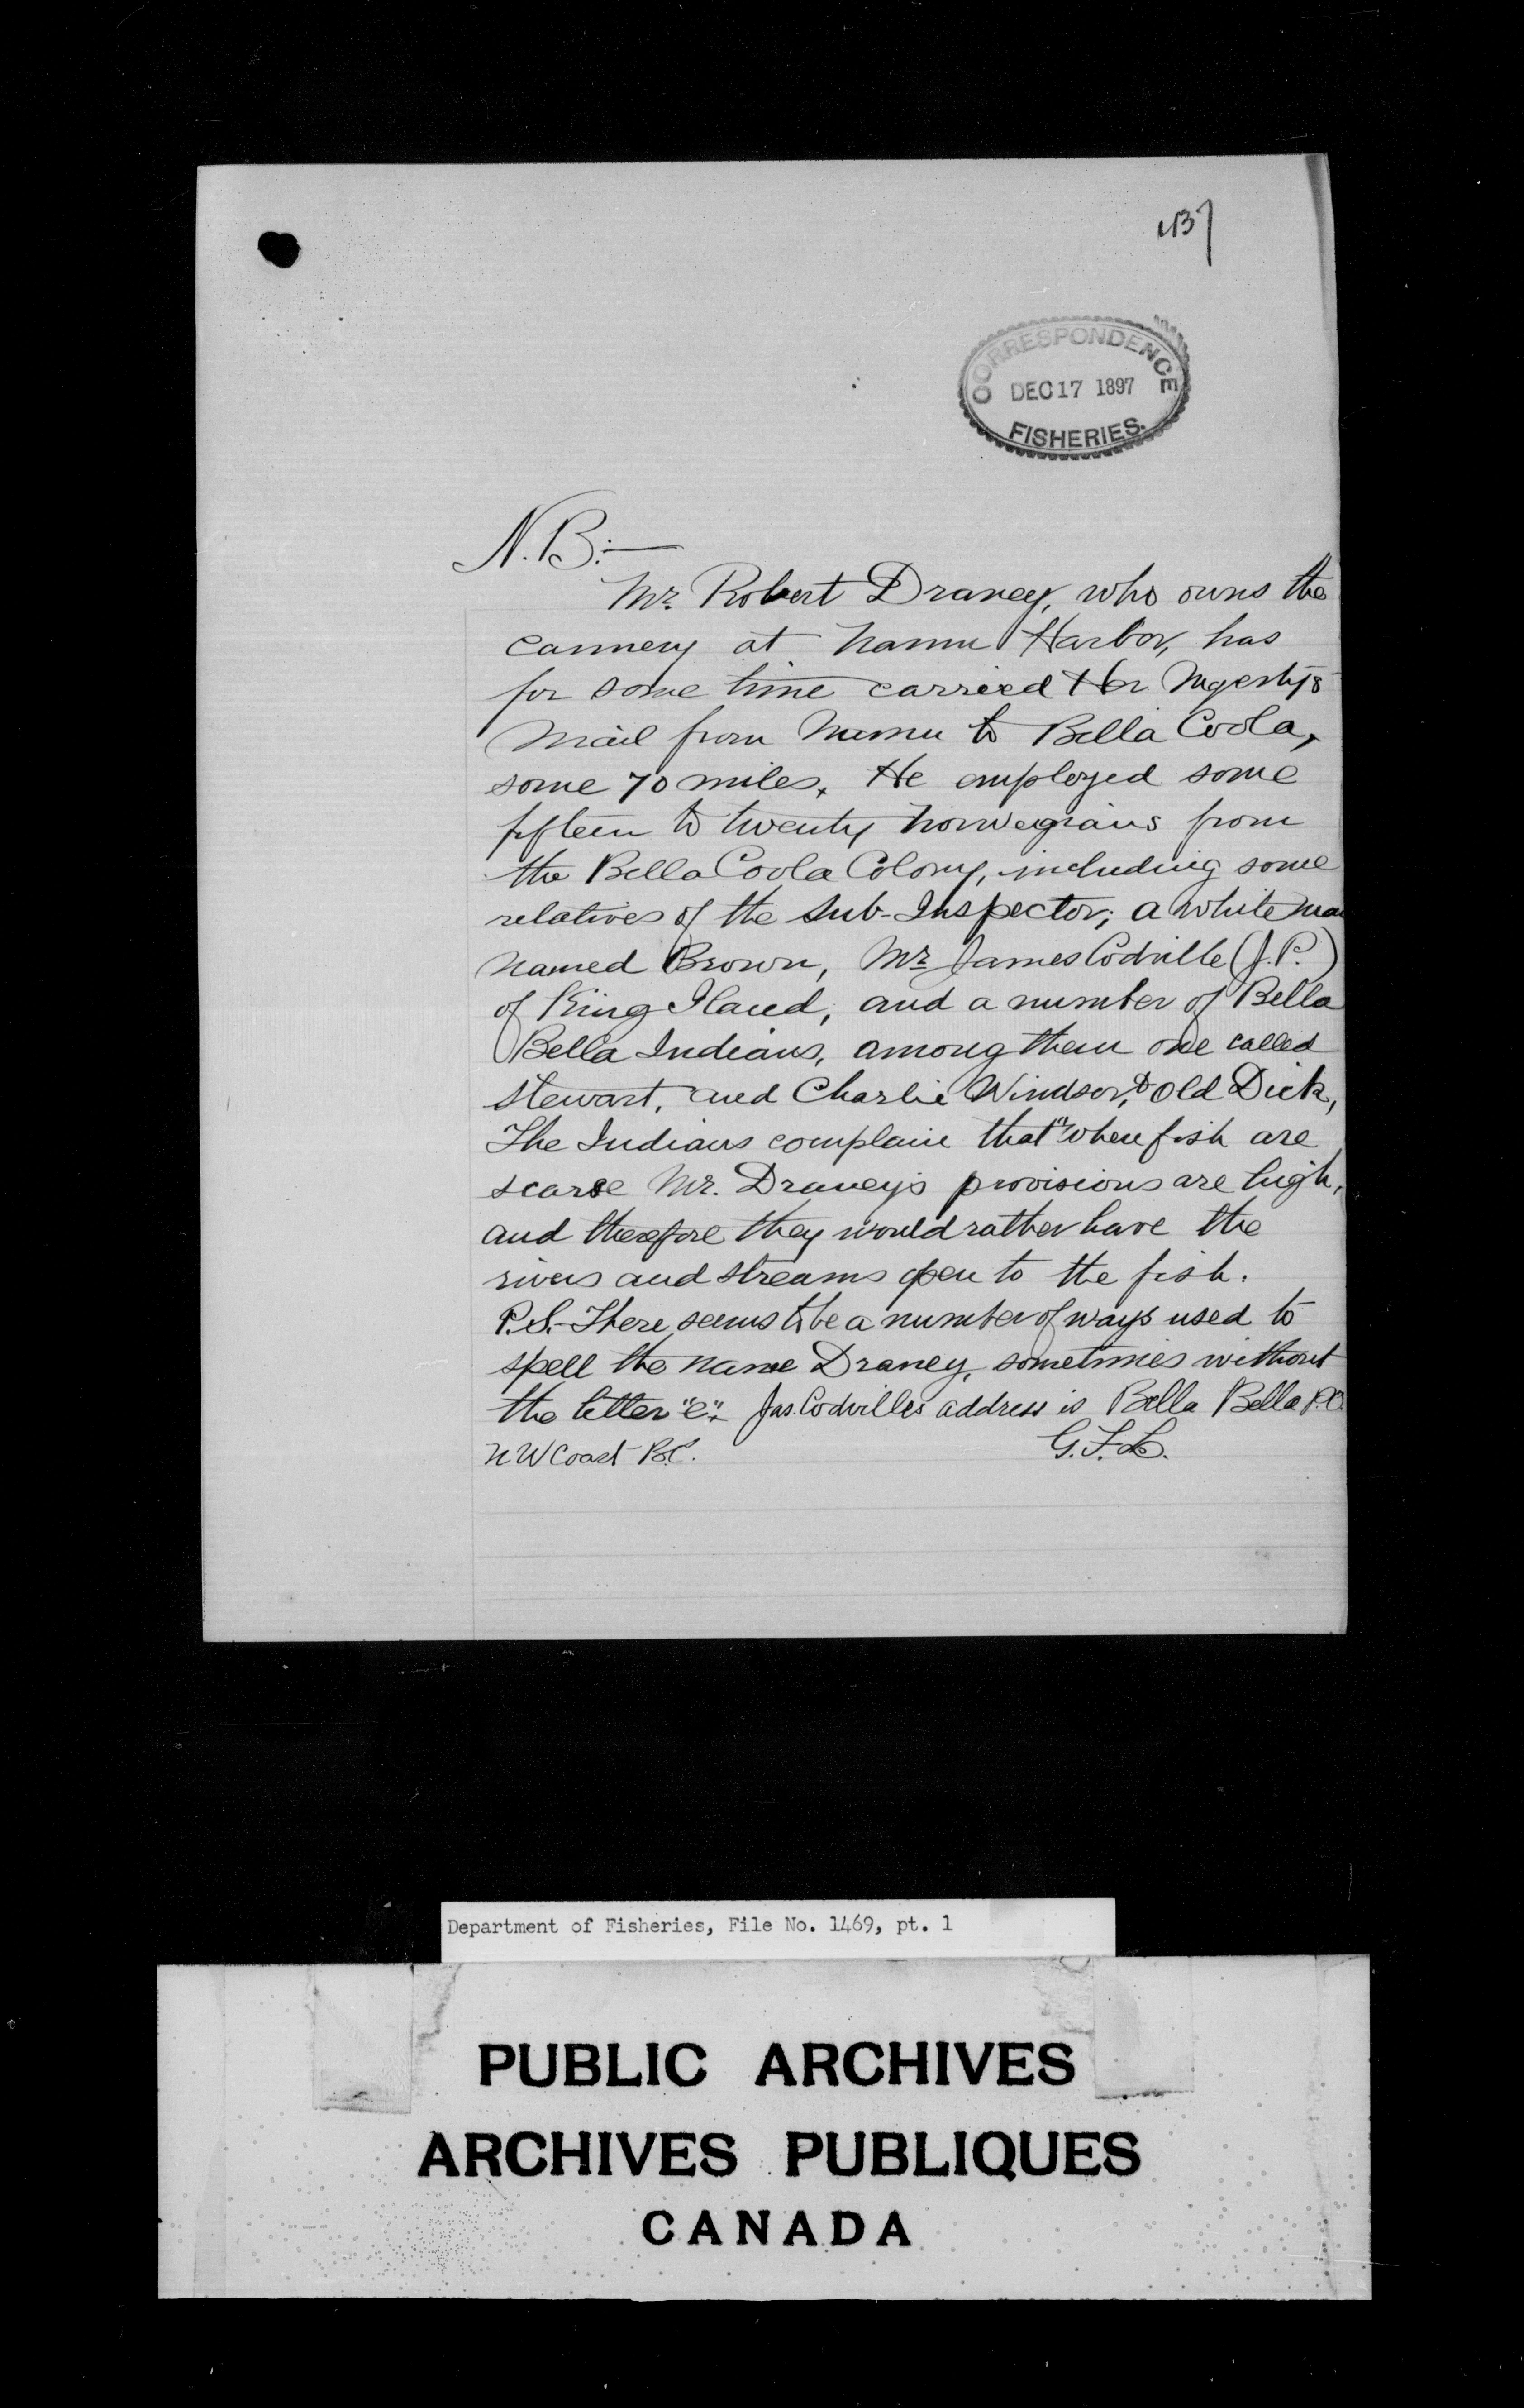 CORRESPONDENCE
DEC 17 1897
FISHERIES.
N.B:—
Mr. Robert Draney, who owns the
cannery at Namu Harbor, has
for some time carried Her Majesty's
Mail from Namu to Bella Coola,
some 70 miles. He employed some
fifteen to twenty Norwegians from
the Bella Coola Colony, including some
relatives of the Sub-Inspector; a white man
named Brown, Mr. James Codville (J.P.)
of King Island, and a number of Bella
Bella Indians, among them one called
Stewart, and Charlie Windsor, & Old Dick,
The Indians complain that "when fish are
scarse Mr. Draney's provisions are high,
and therefore they would rather have the
rivers and streams open to the fish.
P.S.- There seems to be a number of ways used to
spell the name Draney, sometimes without
the letter "e". Jas. Codvilles address is Bella Bella P.O.
N W Coast B.C. G.F.L.
Department of Fisheries, File No. 1469, pt. 1
PUBLIC ARCHIVES
ARCHIVES PUBLIQUES
CANADA